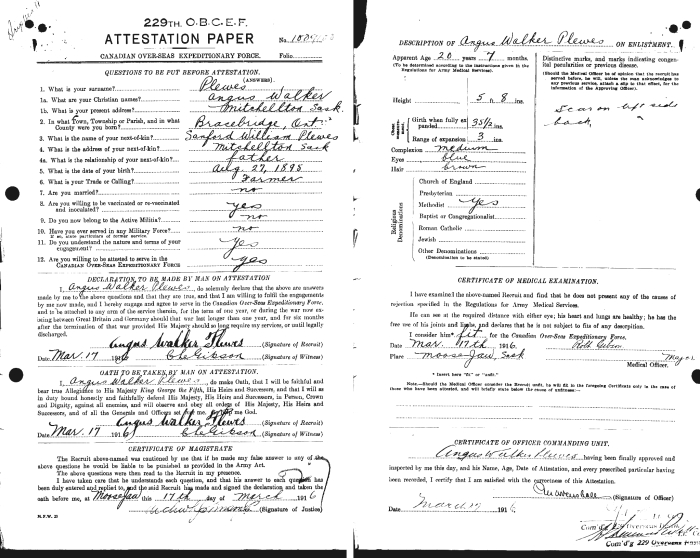 229TH. O.B.C.E.F.
ATTESTATION PAPER
No.
CANADIAN OVER-SEAS EXPEDITIONARY FORCE.
Folio
QUESTIONS TO BE PUT BEFORE ATTESTATION.
(ANSWERS)
1. What is your surname? Plewes
1a. What are your Christian names? Angus Walker
1b. What is your present address? Mitchellton Sask.
2. In what Town, Township or Parish, and in what Country were you born? Bracebridge, Ont.
3. What is the name of your next-of-kin? Sanford William Plewes
4. What is the address of your next-of-kin? Mitchellton Sask
4a. What is the relationship of your next-of-kin? father
5. What is the date of your birth? Aug. 27, 1895
6. What is your Trade or Calling? Farmer
7. Are you married? no
8. Are you willing to be vaccinated or re-vaccinated and inoculated? yes
9. Do you now belong to the Active Militia? no
10. Have you ever served in any Military Force? no
If so, state particulars of former service.
11. Do you understand the nature and terms of your engagement? yes
12. Are you willing to be attested to serve in the CANADIAN OVER-SEAS EXPEDITIONARY FORCE? yes
DECLARATION TO BE MADE BY MAN ON ATTESTATION
I, Angus Walker Plewes, do solemnly declare that the above are answers
made by me to the above questions and that they are true, and that I am willing to fulfil the engagements
by me now made, and I hereby engage and agree to serve in the Canadian Over-Seas Expeditionary Force,
and to be attached to any arm of the service therein, for the term of one year, or during the war now existing
between Great Britain and Germany should that war last longer than one year, and for six months
after the termination of that war provided His Majesty should so long require my services, or until legally
discharged.
Angus Walker Plewes (Signature of Recruit)
Date Mar. 17 1916 (Signature of Witness)
OATH TO BE TAKEN BY MAN ON ATTESTATION.
I, Angus Walker Plewes, do make Oath, that I will be faithful and
bear true Allegiance to His Majesty King George the Fifth, His Heirs and Successors, and that I will as
in duty bound honestly and faithfully defend His Majesty, His Heirs and Successors, in Person, Crown
and Dignity, against all enemies, and will observe and obey all orders of His Majesty, His Heirs and
Successors, and of all the Generals and Officers set over me. So help me God.
Angus Walker Plewes (Signature of Recruit)
Date Mar. 17 1916 (Signature of Witness)
CERTIFICATE OF MAGISTRATE
The Recruit above-named was cautioned by me that if he made any false answer to any of the
above questions he would be liable to be punished as provided in the Army Act.
The above questions were then read to the Recruit in my presence.
I have taken care that he understands each question, and that his answer to each question has
been duly entered as replied to, and the said Recruit has made and signed the declaration and taken the
oath before me, at Moose Jaw this 17th day of March 1916
(Signature of Justice)
M.F.W. 23
DESCRIPTION OF Angus Walker Plewes ON ENLISTMENT.
Apparent Age 20 years 7 months.
(To be determined according to the instructions given in the Regulations for Army Medical Services.)
Distinctive marks, and marks indicating congenital peculiarities or previous disease.
(Should the Medical Officer be of opinion that the recruit has served before, he will, unless the man acknowledges to any previous service, attach a slip to that effect, for the information of the Approving Officer).
Height 5 ft. 8 ins.
Scar on left side
back.
Chest Measurement
Girth when fully expanded 35 1/2 ins.
Range of expansion 3 ins.
Complexion medium
Eyes blue
Hair brown
Religious Denominations
Church of England
Presbyterian
Methodist yes
Baptist or Congregationalist
Roman Catholic
Jewish
Other Denominations
(Denomination to be stated)
CERTIFICATE OF MEDICAL EXAMINATION.
I have examined the above-named Recruit and find that he does not present any of the causes of
rejection specified in the Regulations for Army Medical Services.
He can see at the required distance with either eye; his heart and lungs are healthy; he has the
free use of his joints and limbs, and declares that he is not subject to fits of any description.
I consider him* fit for the Canadian Over-Seas Expeditionary Force.
Date Mar. 17th 1916.
Place Moose Jaw, Sask Major
Medical Officer.
* Insert here "fit" or "unfit."
NOTE.—Should the Medical Officer consider the Recruit unfit, he will fill in the foregoing Certificate only in the case of those who have been attested, and will briefly state below the cause of unfitness:—
CERTIFICATE OF OFFICER COMMANDING UNIT.
Angus Walker Plewes having been finally approved and
inspected by me this day, and his Name, Age, Date of Attestation, and every prescribed particular having
been recorded, I certify that I am satisfied with the correctness of this Attestation.
(Signature of Officer)
Date March 17 1916
Com'd'g 229 OVERSEAS